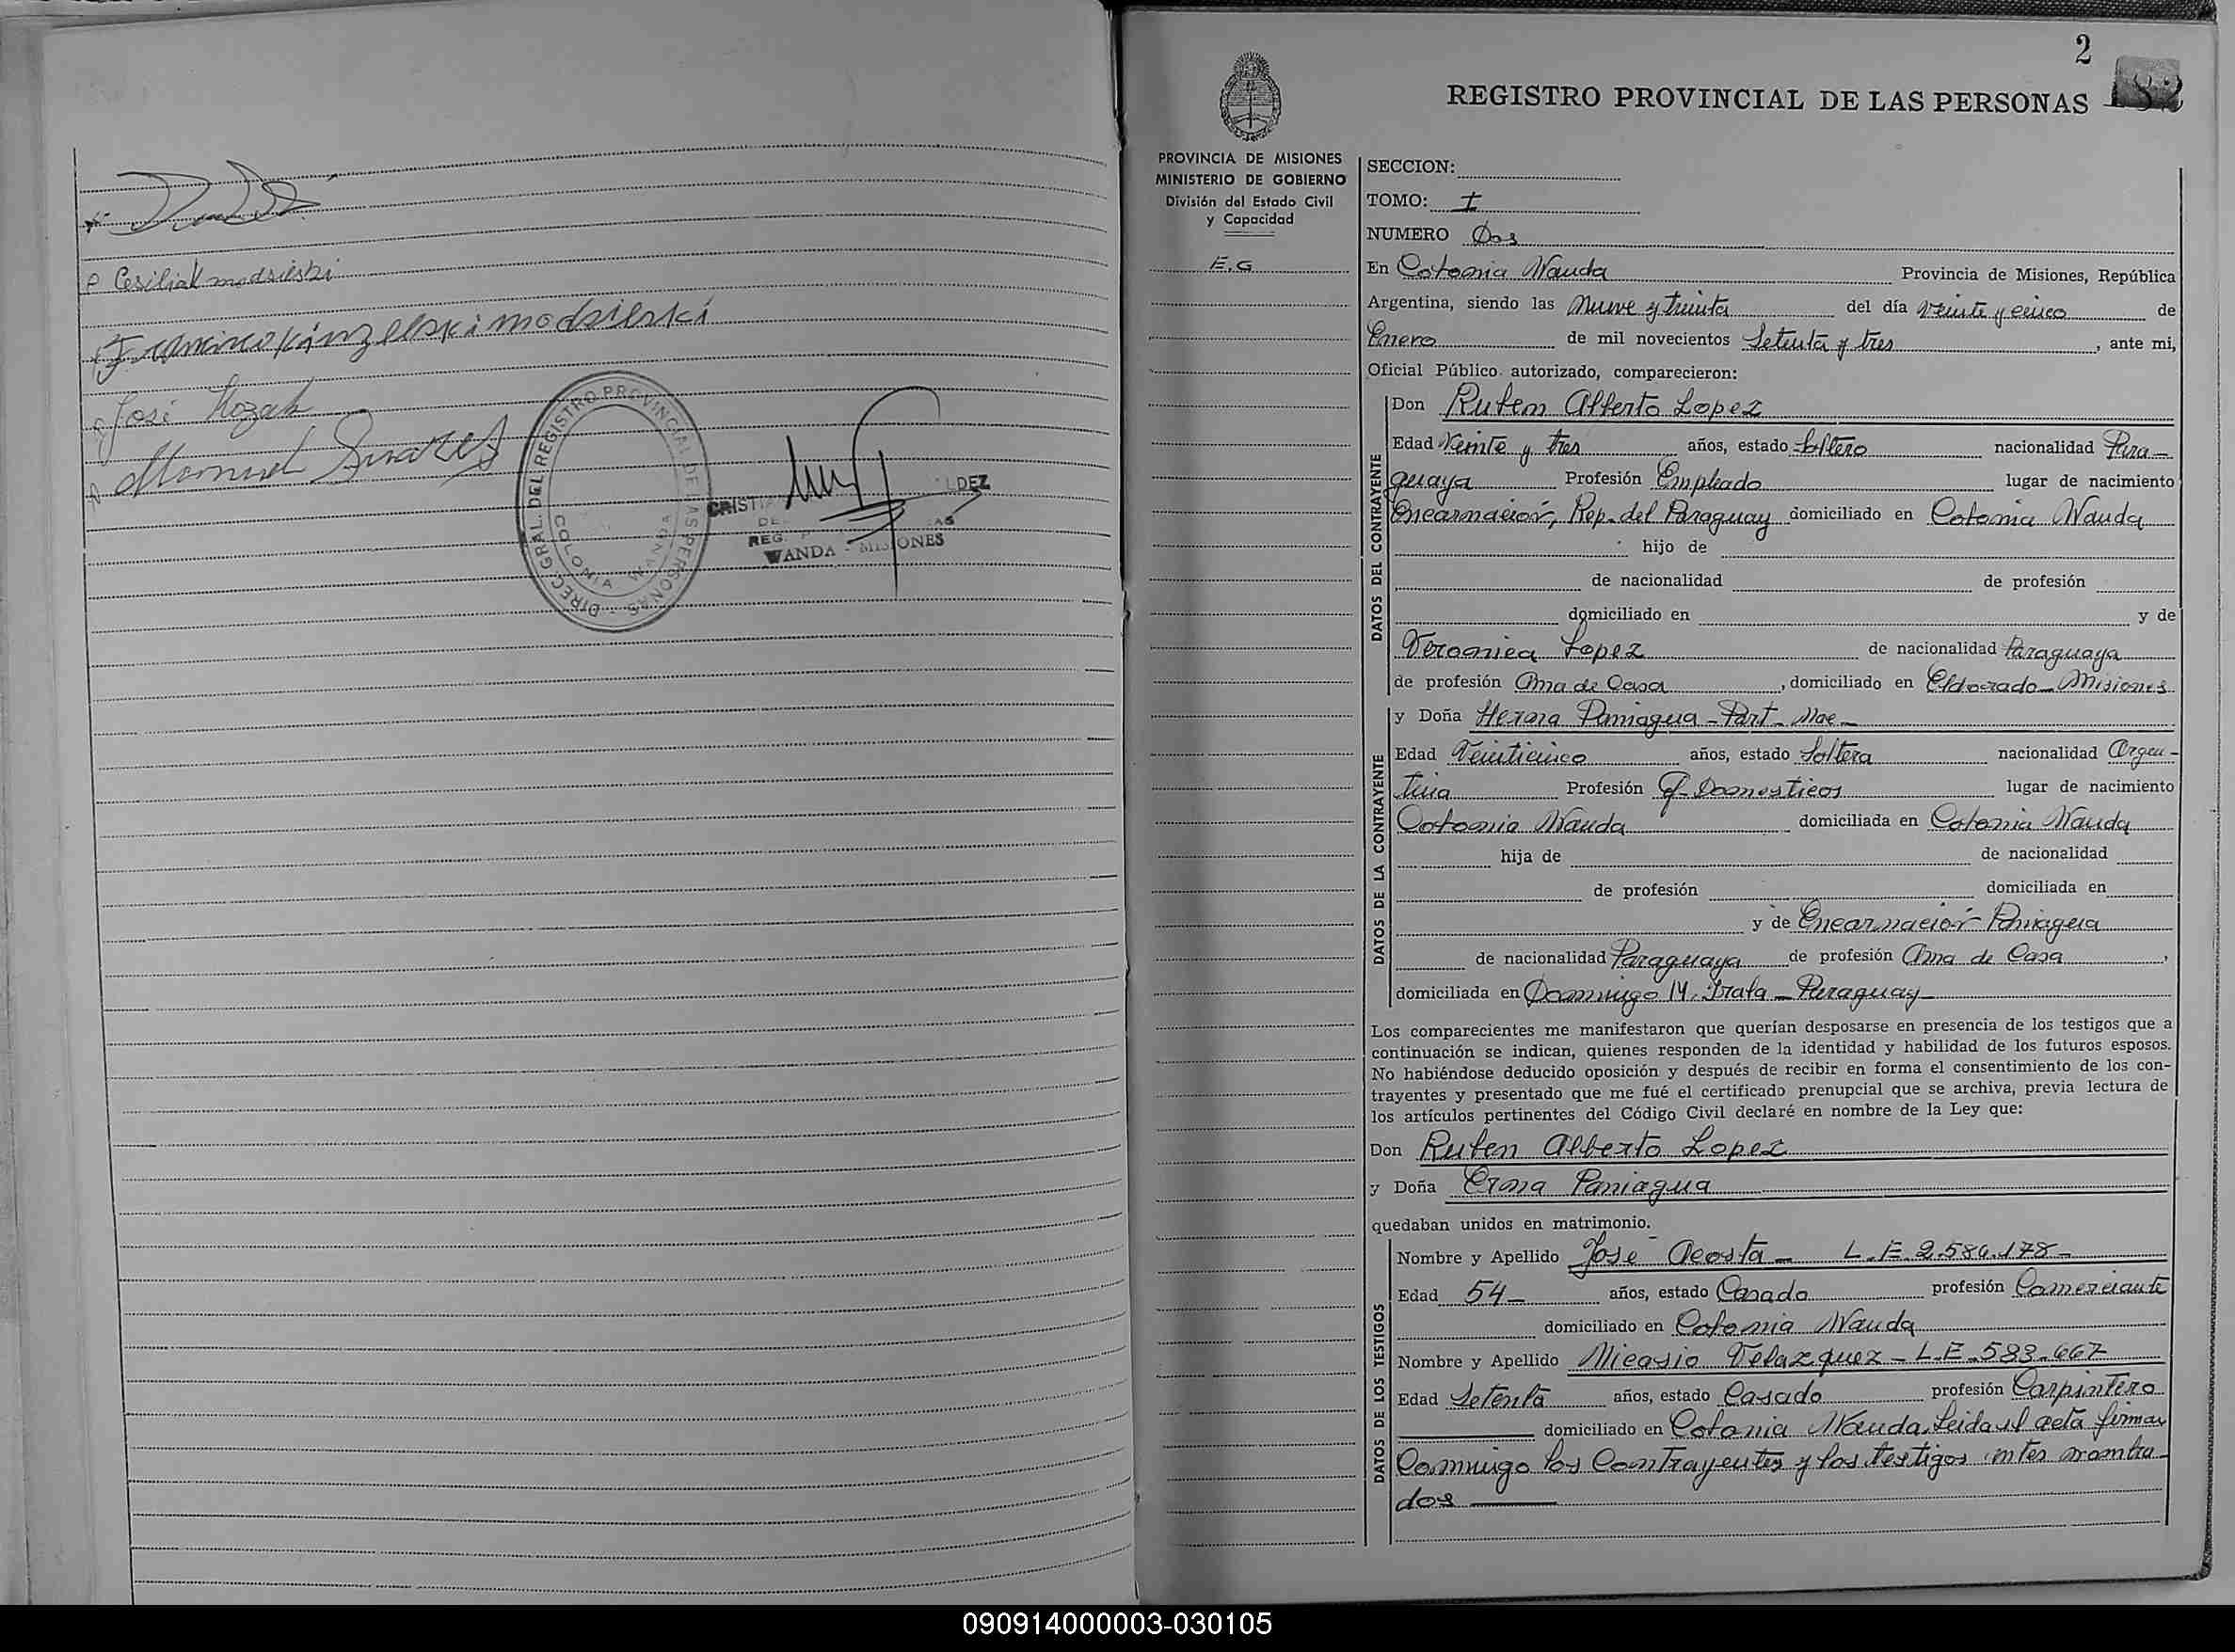 Cesilia Kmodsieski
Francisco Kinzelski modsieski
José Kozak
Manuel Suarez
DIREC. GRAL. DEL REGISTRO PROVINCIAL DE LAS PERSONAS
COLONIA WANDA
REG.
WANDA - MISIONES
2
REGISTRO PROVINCIAL DE LAS PERSONAS
PROVINCIA DE MISIONES
MINISTERIO DE GOBIERNO
División del Estado Civil
y Capacidad
E.G
SECCION:
TOMO: I
NUMERO Dos
En Colonia Wanda Provincia de Misiones, República
Argentina, siendo las nueve y treinta del día veinte y cinco de
Enero de mil novecientos Setenta y tres, ante mi,
Oficial Público autorizado, comparecieron:
DATOS DEL CONTRAYENTE
Don Ruben Alberto Lopez
Edad Veinte y tres años, estado Soltero nacionalidad Para-
guaya Profesión Empleado lugar de nacimiento
Encarnación, Rep. del Paraguay domiciliado en Colonia Wanda
hijo de
de nacionalidad de profesión
domiciliado en y de
Veronica Lopez de nacionalidad Paraguaya
de profesión Ama de Casa, domiciliado en Eldorado - Misiones
DATOS DE LA CONTRAYENTE
y Doña Herma Paniagua - Part. Nac -
Edad Veinticinco años, estado Soltera nacionalidad Argen-
tina Profesión Q. Domesticos lugar de nacimiento
Colonia Wanda domiciliada en Colonia Wanda
hija de de nacionalidad
de profesión domiciliada en
y de Encarnación Paniagua
de nacionalidad Paraguaya de profesión Ama de Casa,
domiciliada en Domingo M. Irala - Paraguay
Los comparecientes me manifestaron que querían desposarse en presencia de los testigos que a
continuación se indican, quienes responden de la identidad y habilidad de los futuros esposos.
No habiéndose deducido oposición y después de recibir en forma el consentimiento de los con-
trayentes y presentado que me fué el certificado prenupcial que se archiva, previa lectura de
los artículos pertinentes del Código Civil declaré en nombre de la Ley que:
Don Ruben Alberto Lopez
y Doña Erma Paniagua
quedaban unidos en matrimonio.
DATOS DE LOS TESTIGOS
Nombre y Apellido José Acosta - L.E. 2.586.178 -
Edad 54 - años, estado Casado profesión Comerciante
domiciliado en Colonia Wanda
Nombre y Apellido Nicasio Velazquez - L.E. 583.667
Edad Setenta años, estado Casado profesión Carpintero
domiciliado en Colonia Wanda. Leida el acta firman
Conmigo los Contrayentes y los testigos antes nombra-
dos
090914000003-030105